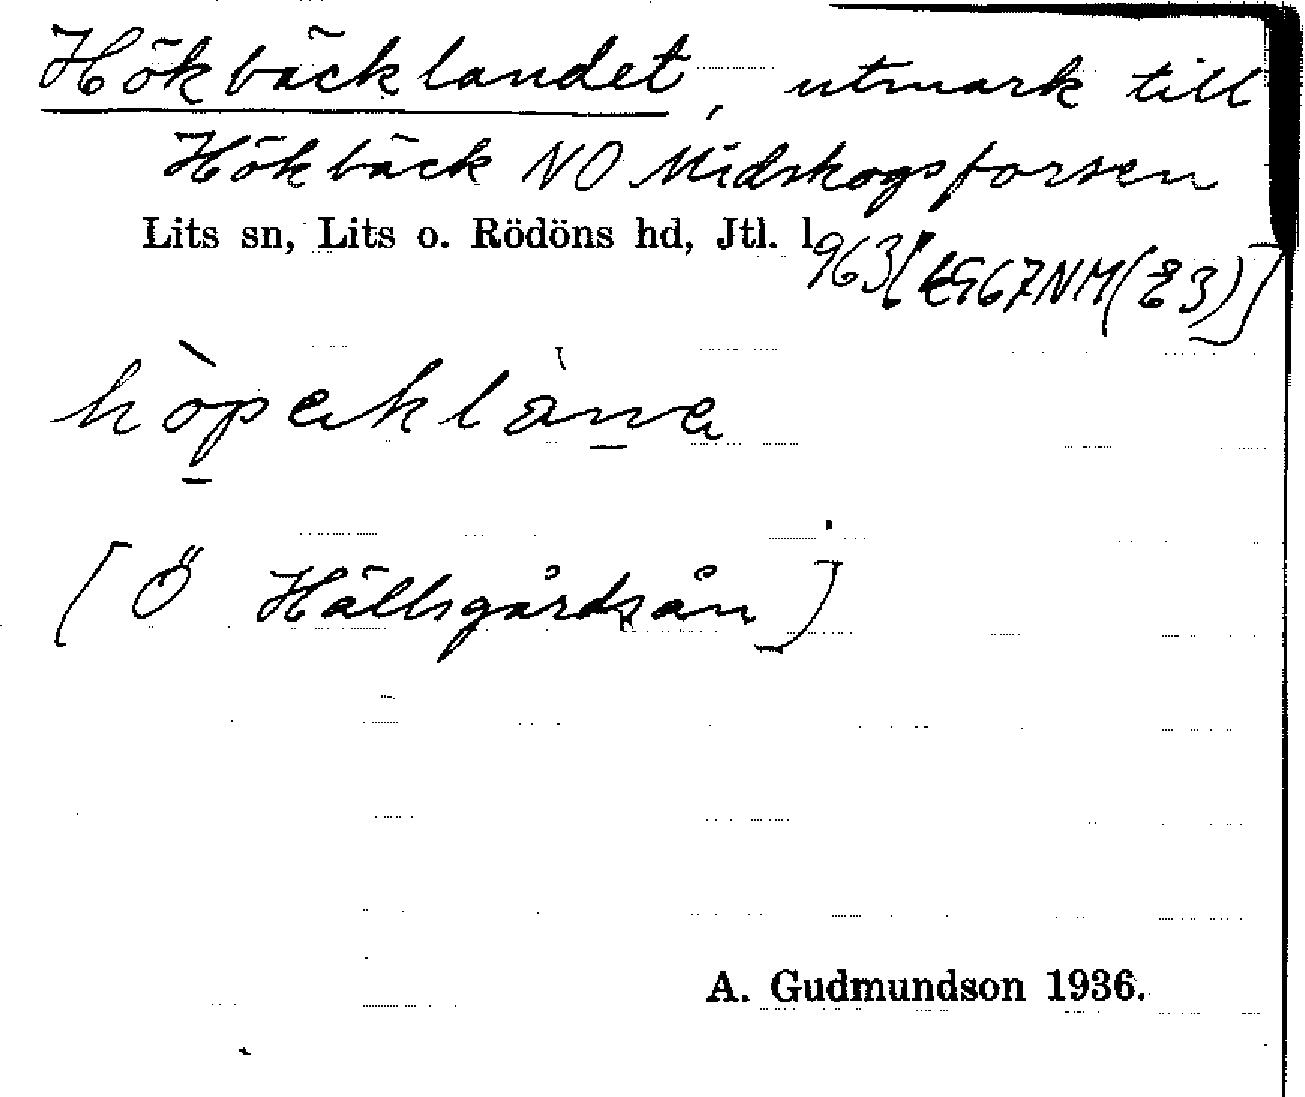 Hökbäcklandet, utmark till
Hökbäck NO Midskogsforsen
Lits sn, Lits o. Rödöns hd, Jtl. l
963
[Ö Hällsgårdsån]
A. Gudmundson 1936.